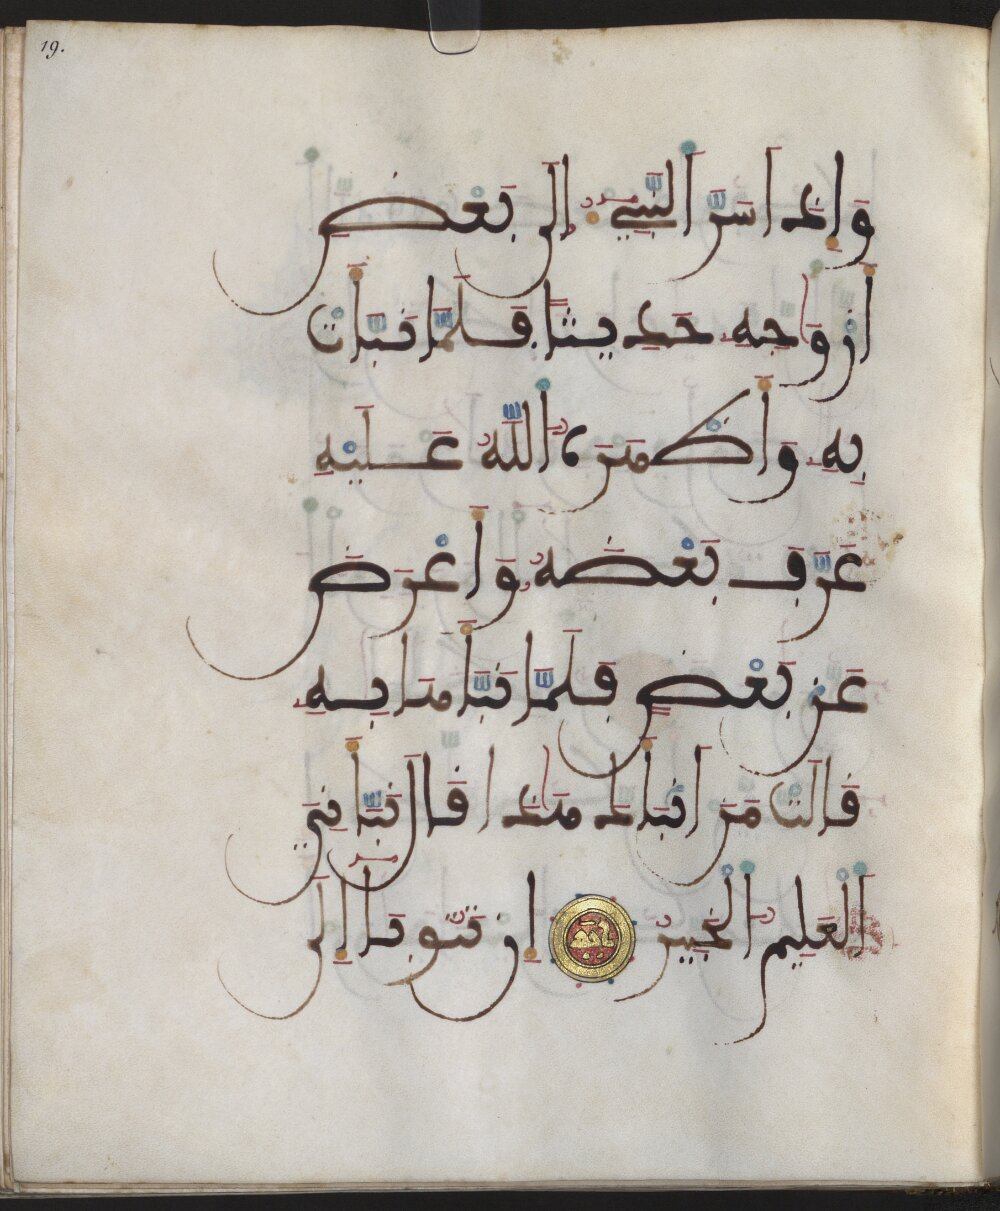 19.
وَإِذَ اسَرَّ النَّبِيُّ إِلَىٰ بَعْضِ
أَزْوَاجِهِ حَدِيثًا فَلَمَّا نَبَّأَتْ
بِهِ وَأَظْهَرَهُ اللَّهُ عَلَيْهِ
عَرَّفَ بَعْضَهُ وَأَعْرَضَ
عَنْ بَعْضٍ فَلَمَّا نَبَّأَهَا بِهِ
قَالَتْ مَنَ انْبَأَكَ هَٰذَا قَالَ نَبَّأَنِيَ
الْعَلِيمُ الْخَبِيرُ إِنْ تَتُوبَا إِلَى